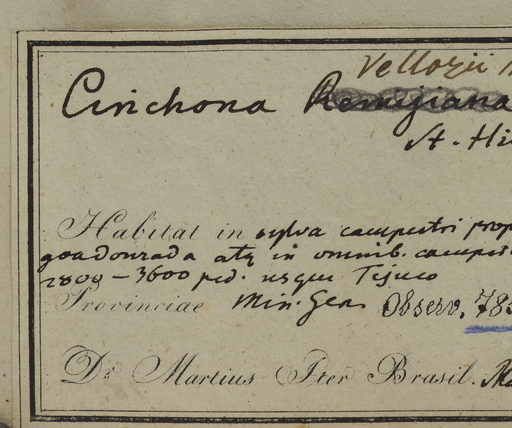 Vellozii
Cinchona Remijiana
St. Hi
Habitat in sylva campestri prop
goadourada atq in omnib. campes
2800 - 3600 ped. usque Tejuco
Provinciae Min. Ger. Observ. 785
Dr. Martius Iter Brasil. Ma